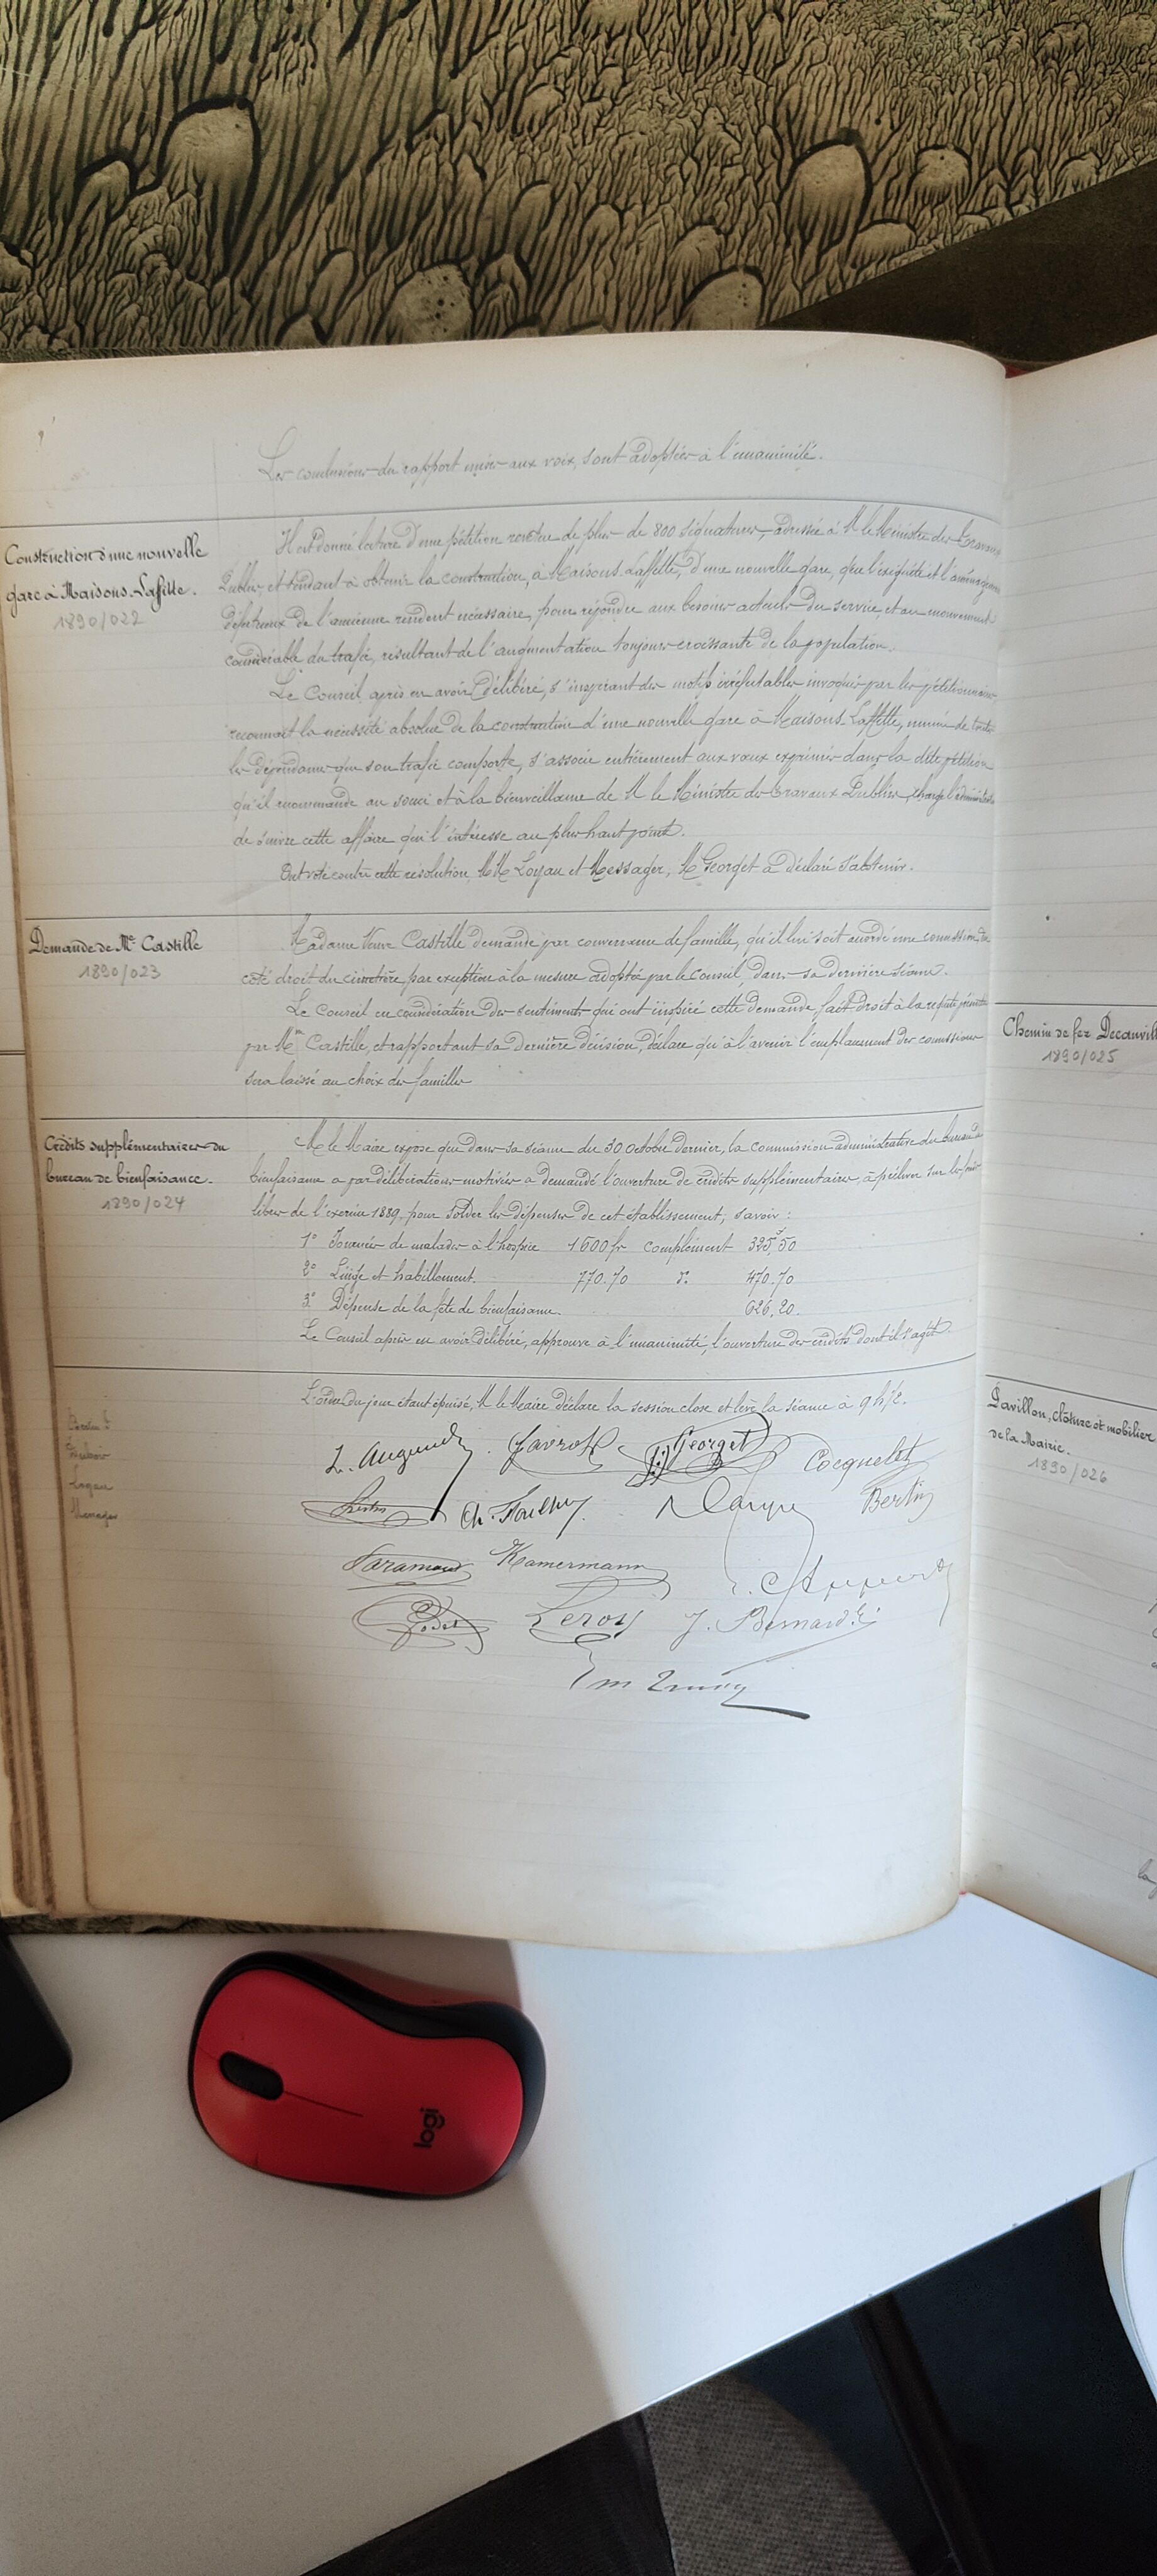 Les conclusions du rapport mises aux voix, sont adoptées à l'unanimité.
Construction d'une nouvelle
gare à Maisons-Laffitte.
1890/022
Il est donné lecture d'une pétition revêtue de plus de 800 signatures, adressée à M le Ministre des Travaux
Publics, et tendant à obtenir la construction, à Maisons-Laffitte, d'une nouvelle gare, que l'exiguité et l'aménagement
défectueux de l'ancienne rendent nécessaire, pour répondre aux besoins actuels du service, et au mouvement
considérable du trafic, résultant de l'augmentation toujours croissante de la population.
Le Conseil après en avoir délibéré, s'inspirant des motifs irréfutables invoqués par les pétitionnaires,
reconnait la nécessité absolue de la construction d'une nouvelle gare à Maisons-Laffitte, munie de toutes
les dépendances que son trafic comporte, s'associe entièrement aux vœux exprimés dans la dite pétition
qu'il recommande au souci et à la bienveillance de M le Ministre des Travaux Publics, charge l'administration
de suivre cette affaire qui l'intéresse au plus haut point.
Ont voté contre cette résolution, MM Loyau et Messager, M Georget a déclaré s'abstenir.
Demande de Me Castille
1890/023
Madame Veuve Castille demande par convenance de famille, qu'il lui soit accordé une concession du
coté droit du cimetière par exception à la mesure adoptée par le Conseil, dans sa dernière séance.
Le Conseil en considération des sentiments qui ont inspiré cette demande fait droit à la requête présentée
par Me Castille, et rapportant sa dernière décision, déclare qu'à l'avenir l'emplacement des concessions
sera laissé au choix des familles
Crédits supplémentaires du
bureau de bienfaisance.
1890/024
M le Maire expose que dans sa séance du 30 octobre dernier, la commission administrative du bureau de
bienfaisance a par délibérations motivées a demandé l'ouverture de crédits supplémentaires, à prélever sur les fonds
libres de l'exercice 1889, pour solder les dépenses de cet établissement, savoir:
1° Journées de malades à l'hospice 1600 fr complément 325f,50
2° Linge et habillement. 770.70 d° 470.70
3° Dépense de la fête de bienfaisance. 626,20.
Le Conseil après en avoir délibéré, approuve à l'unanimité, l'ouverture des crédits dont il s'agit.
L'ordre du jour étant épuisé, M le Maire déclare la session close et lève la séance à 9 h 1/2.
Loyau
Messager
Favrot
Georget
Cocquelet
Bertin
Kamermann
Godet
Leroy
J. Bernard
Chemin de fer Decauville
1890/025
Pavillon, clôture et mobilier
de la Mairie.
1890/026
logi